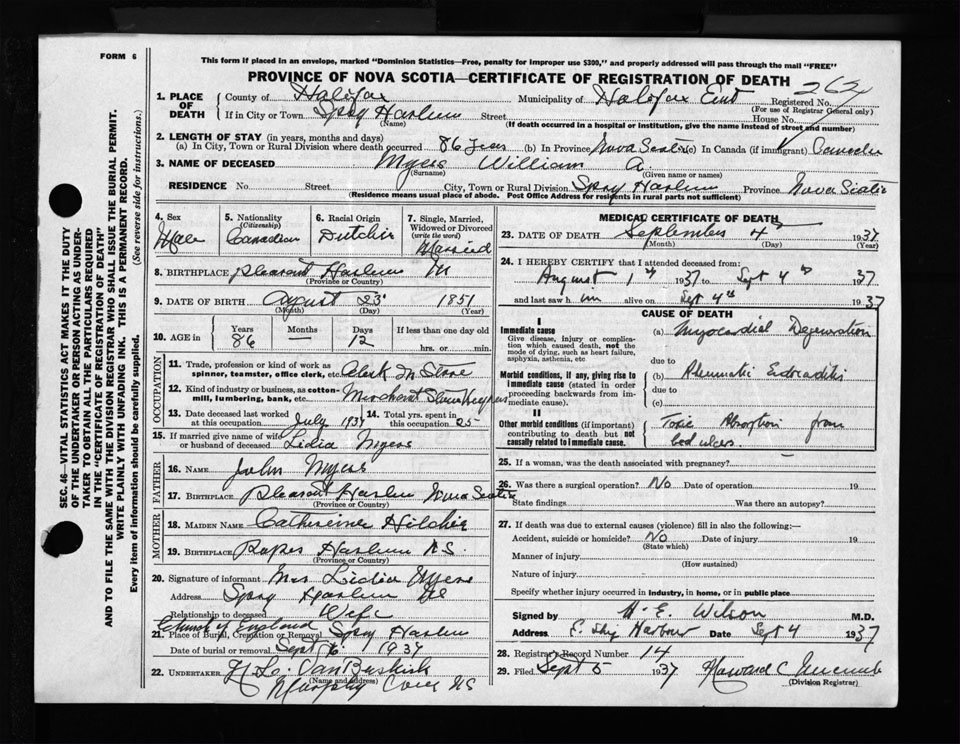 FORM 6
This form if placed in an envelope, marked "Dominion Statistics—Free, penalty for improper use $300," and properly addressed will pass through the mail "FREE"
PROVINCE OF NOVA SCOTIA—CERTIFICATE OF REGISTRATION OF DEATH
262
1. PLACE OF DEATH
County of Halifax Municipality of Halifax East Registered No.
(For use of Registrar General only)
If in City or Town Spry Harbour Street House No.
(Name) (If death occurred in a hospital or institution, give the name instead of street and number)
2. LENGTH OF STAY (in years, months and days)
(a) In City, Town or Rural Division where death occurred 86 years (b) In Province Nova Scotia (c) In Canada (if immigrant) Canada
3. NAME OF DECEASED Myers William A.
(Surname) (Given name or names)
RESIDENCE No. Street City, Town or Rural Division Spry Harbour Province Nova Scotia
(Residence means usual place of abode. Post Office Address for residents in rural parts not sufficient)
4. Sex Male
5. Nationality (Citizenship) Canadian
6. Racial Origin Dutch
7. Single, Married, Widowed or Divorced (write the word) Married
8. BIRTHPLACE Pleasant Harbour NS
(Province or Country)
9. DATE OF BIRTH August 23 1851
(Month) (Day) (Year)
10. AGE in Years 86 Months — Days 12 If less than one day old hrs. or min.
OCCUPATION
11. Trade, profession or kind of work as spinner, teamster, office clerk, etc. Clerk In Store
12. Kind of industry or business, as cotton-mill, lumbering, bank, etc. Merchant
13. Date deceased last worked at this occupation July 1937
14. Total yrs. spent in this occupation 25
15. If married give name of wife or husband of deceased. Lidia Myers
FATHER
16. NAME John Myers
17. BIRTHPLACE Pleasant Harbour Nova Scotia
(Province or Country)
MOTHER
18. MAIDEN NAME Catherine Hilchie
19. BIRTHPLACE Popes Harbour N.S.
(Province or Country)
20. Signature of informant Mrs Lidia Myers
Address Spry Harbour NS
Relationship to deceased Wife
Church of England
21. Place of Burial, Cremation or Removal Spry Harbour
Date of burial or removal Sept 6 1937
22. UNDERTAKER H. L. VanBuskirk
(Name and address)
Murphy Cove NS
MEDICAL CERTIFICATE OF DEATH
23. DATE OF DEATH September 4th 1937
(Month) (Day) (Year)
24. I HEREBY CERTIFY that I attended deceased from:
August 1st 1937 to Sept 4th 1937
and last saw him alive on Sept 4th 1937
CAUSE OF DEATH
I
Immediate cause
Give disease, injury or complication which caused death, not the mode of dying, such as heart failure, asphyxia, asthenia, etc
(a) Myocardial Degeneration
due to
Morbid conditions, if any, giving rise to immediate cause (stated in order proceeding backwards from immediate cause).
(b) Rheumatic Endocarditis
due to
(c)
II
Other morbid conditions (if important) contributing to death but not causally related to immediate cause.
Toxic Absorption from
bed ulcers.
25. If a woman, was the death associated with pregnancy?
26. Was there a surgical operation? No Date of operation 19
State findings Was there an autopsy?
27. If death was due to external causes (violence) fill in also the following:—
Accident, suicide or homicide? No Date of injury 19
(State which)
Manner of injury
(How sustained)
Nature of injury
Specify whether injury occurred in industry, in home, or in public place
Signed by H. E. Wilson M.D.
Address E. Ship Harbour Date Sept 4 1937
28. Registrar's Record Number 14
29. Filed Sept 5 1937 Howard C
(Division Registrar)
SEC. 46—VITAL STATISTICS ACT MAKES IT THE DUTY
OF THE UNDERTAKER OR PERSON ACTING AS UNDER-
TAKER TO OBTAIN ALL THE PARTICULARS REQUIRED
IN THE "CERTIFICATE OF REGISTRATION OF DEATH"
AND TO FILE THE SAME WITH THE DIVISION REGISTRAR WHO SHALL ISSUE THE BURIAL PERMIT.
WRITE PLAINLY WITH UNFADING INK. THIS IS A PERMANENT RECORD.
Every item of information should be carefully supplied. (See reverse side for instructions.)